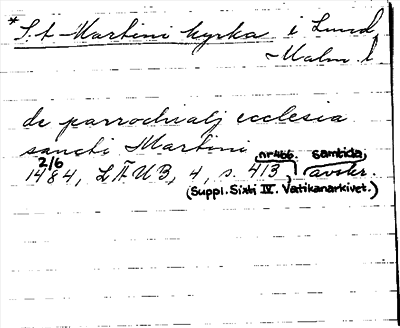 *S:t Martini kyrka i Lund,
Malm. l
de parrochialj ecclesia
sancti Martini
nr 466. samtida
2/6
1484, LÄUB, 4, s. 413, avskr.
(Suppl. Sixti IV. Vatikanarkivet.)